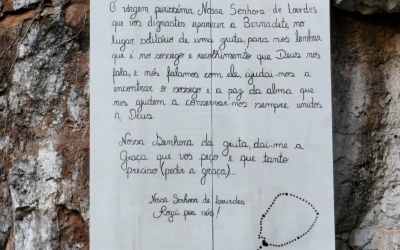 Ó virgem puríssima, Nossa Senhora de Lourdes
que vos dignastes aparecer a Bernadete no
lugar solitário de uma gruta, para nos lembrar
que é no sossego e recolhimento que Deus nos
fala, e nós falamos com ele, ajudai-nos a
encontrar o sossego e a paz da alma que
nos ajudem a conservar-nos sempre unidos
a Deus.
Nossa Senhora da gruta, dai-me a
Graça que vos peço e que tanto
preciso (pedir a graça)...
Nossa Senhora de Lourdes
Rogai por nós!